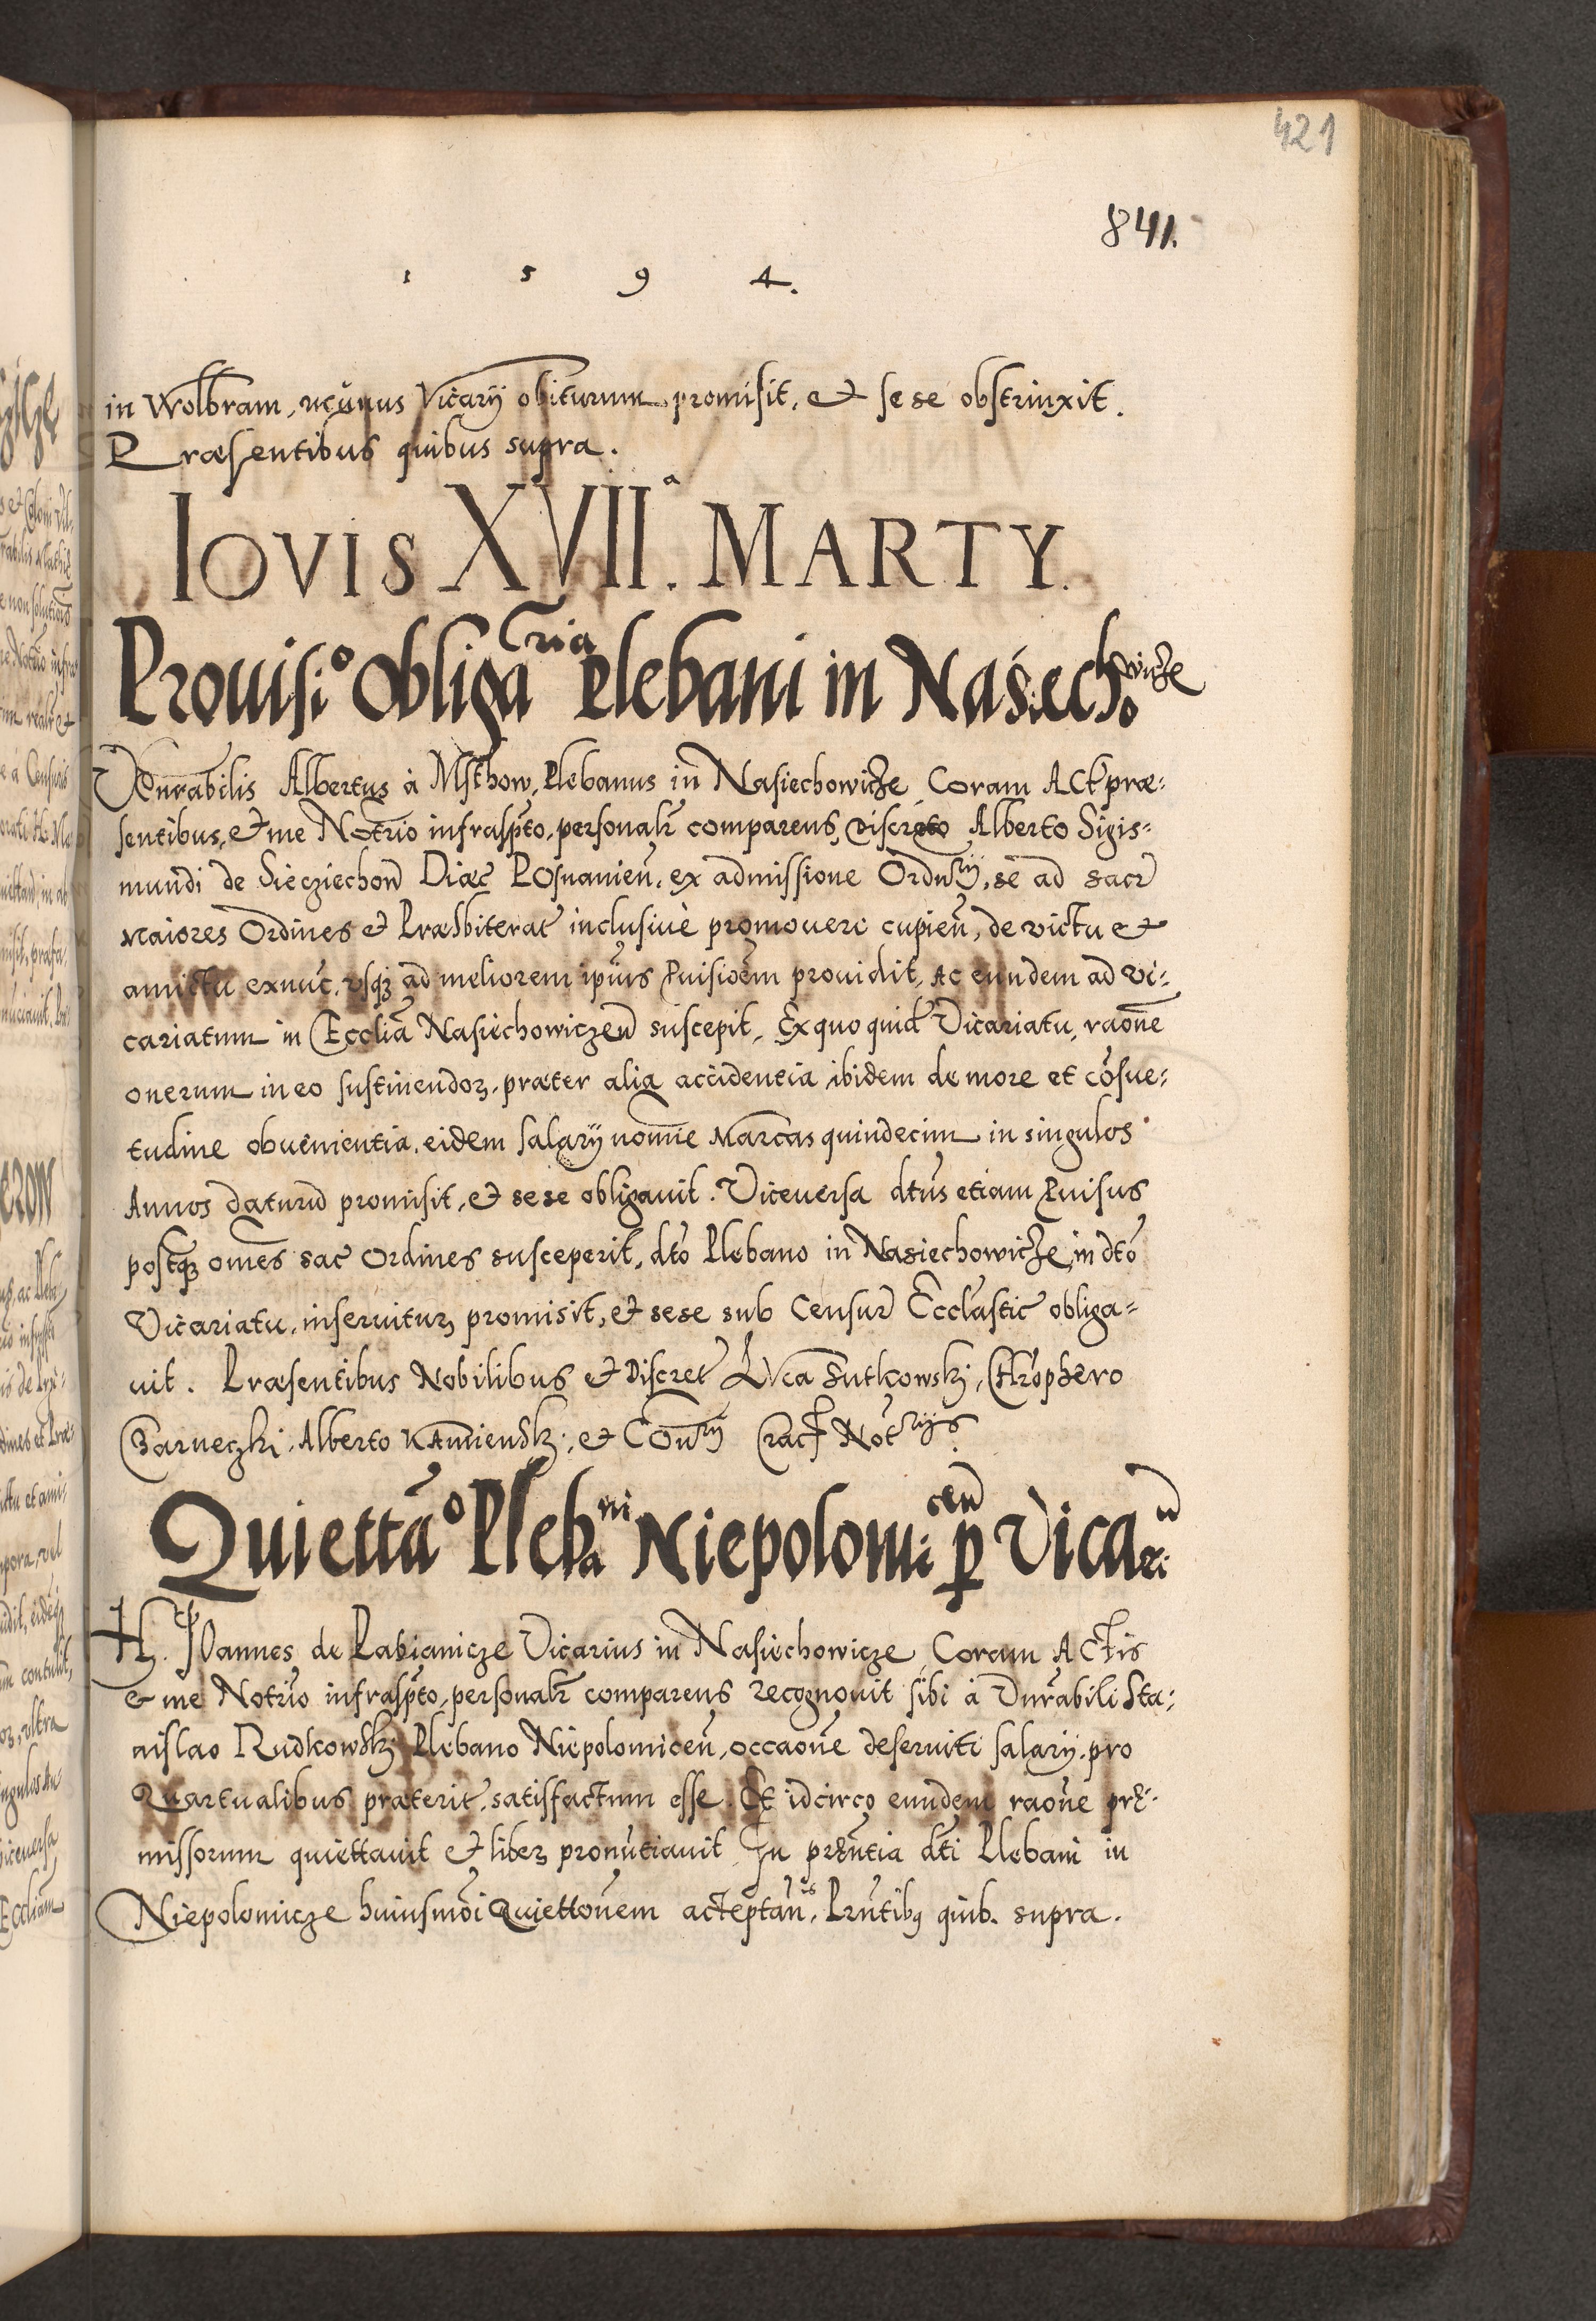 421
841.
1 5 9 4.
in Wolbram, munus Vicarÿ obiturum promisit, et sese obstrinxit.
Præsentibus quibus supra.
IOVIS XVII.ª MARTY.
Prouisio obligaria Plebani in Nasiechowicze
Venrabilis Albertus à Msthow, Plebanus in Nasiechowicze Coram Act præ:
sentibus, et me Notrio infraspto, personalr comparens, Discreto Alberto Sigis=
mundi de Siecziechow Diæc Posnanien, ex admissione Ordnrÿ, se ad sacr
Maiores Ordines et Præsbiterat inclusiuè promoueri cupien, de victu et
amictu exnuc, vsq3 ad meliorem ipius Puisioem prouidit, ac eundem ad vi:
cariatum in Ecclia Nasiechowiczen suscepit, Ex quo quid Vicariatu, raone
onerum in eo sustinendor, præter alia accidentia ibidem de more et cosue:
tudine obuenientia, eidem salarÿ nomine Marcas quindecim in singulos
Annos daturum promisit, et sese obligauit. Viceuersa dtus etiam Puisus
postq3 omes sac Ordines susceperit, dto Plebano in Nasiechowicze, in dto
Vicariatu, inseruitur promisit, et sese sub Censur Ecclastic obliga=
uit. Præsentibus Nobilibus et Discret Luca Sutkowski, Chrophero
Czarneczki, Alberto Kamiensk, et Conrÿ Crac Notrÿs.
Quiettao Plebani Niepolomicen p Vicarium
H. Joannes de Pabianicze Vicarius in Nasiechowicze, Coram Actis
et me Notrio infraspto, personalr comparens recognouit sibi à Vnrabili Sta:
nislao Rudkowski Plebano Niepolomicen, occaone deseruiti salarÿ, pro
Quartualibus præterit, satisfactum esse. Et idcirco eundem raone præ-
missorum quiettauit et liber pronutiauit In prsentia dti Plebani in
Niepolomicze huiusmoi Quiettonem acceptantis, Prntibq quib. supra.